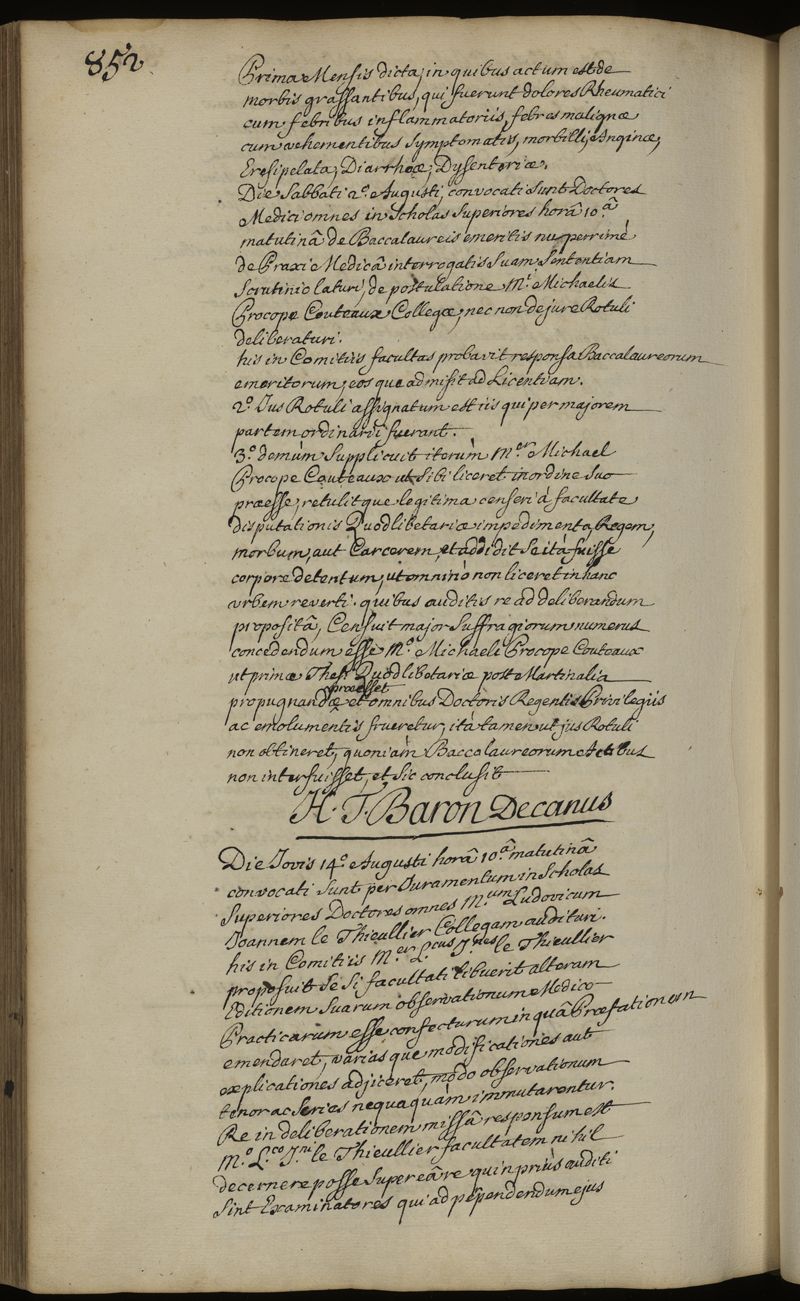 852
Prima Mensis dicta, in quibus actum est de
morbis grassantibus, qui fuerunt dolores Rheumatici
cum febribus inflammatoriis, febres malignæ
cum vehementibus symptomatis, morbilli, Anginæ,
Eresipelata, DiarrhϾ, Dysenteriæ.
Die Sabbati 2.ª Augusti, convocati sunt Doctores
Medici omnes in Scholas Superiores horâ 10.â
matutinâ de Baccalaureis emeritis nuperrimé
de Praxi Medicâ interrogatis suam Sententiam
Scrutinio laturi, de postulatione M.i Michaelis
Procope Couteaux Collegæ, nec non de jure Rotuli
deliberaturi.
his in Comitiis facultas probavit responsa Baccalaureorum
emeritorum, eos que admisit ad Licentiam.
2.º Jus Rotuli assignatum est iis qui per majorem
partem ordinarii fuerant.
3.º demùm Supplicuit iterùm M.er Michael
Procope Couteaux ut sibi liceret in ordine suo
præesse, retulitque legitima censeri á facultate
disputationis Quodlibetariæ impedimenta, Regem,
morbum, aut Carcerem, et addidit se itá fuisse
corpore detentum, ut omninò non liceret in hanc
urbem reverti. quibus auditis re ad deliberandum
propositâ, Censuit major Suffragiorum numerus
concedendum esse M.o Michaeli Procope Couteaux
ut primæ Thesi Quodlibetariæ post Martinalia
præesset
propugnandæ et omnibus Doctoris Regentis Privilegiis
ac emolumentis frueretur, itá tamen ut jus Rotuli
non obtineret, quoniàm Baccalaureorum Actibus
non interfuisset, et sic conclusit
H. T. Baron Decanus
Die Jovis 14.º Augusti horâ 10.â matutinâ
convocati sunt per Juramentum in Scholas
Superiores Doctores omnes M.um Ludovicum
Joannem le Thieullier Collegam audituri.
his in Comitiis M.er L.cus J.nes le Thieullier
proposuit se si facultati libuerit alteram
Editionem suarum observationum Medico
Practicarum esse confecturum in quâ Præfationem
emendaret, varias que modificationes aut
explicationes adjiceret, modo observationum
tenor ac series nequaquàm immutarentur.
Re in deliberationem missâ responsum est
M.o L.co J.ni le Thieullier facultatem nihil
decernere posse super eâ re quin priùs auditi
sint Examinatores qui ad pependendum ejus